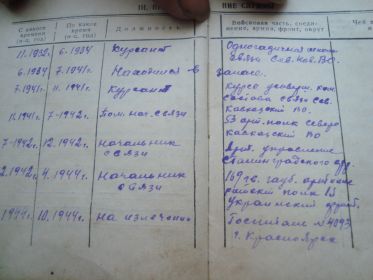 III. ПР
НИЕ СЛУЖБЫ
С какого времени (м-ц, год)
По какое время (м-ц, год)
Должность
Войсковая часть, соединение, армия, фронт, округ
Чей
11.1932 6.1934 Курсант Одногодичная школа
связи Сев. Кав. ВО.
6.1934 7.1941г. Находился в запасе.
7.1941г. 11.1941г. Курсант Курсы усоверш. ком.
состава связи Сев.
Кавказский ВО.
11.1941г. 7-1942г. Пом. нач. связи 53 арт. полк Северо
Кавказский ВО
7-1942г. 12.1942г. начальник
связи
Арт. управление
Сталинградского
2.1942г. 4.1944г. начальник
связи
169 гв. гауб. артилле
рийский полк
Украинский фронт.
1944г. 10.1944г. на излечении Госпиталь № 4093
г. Красноярск